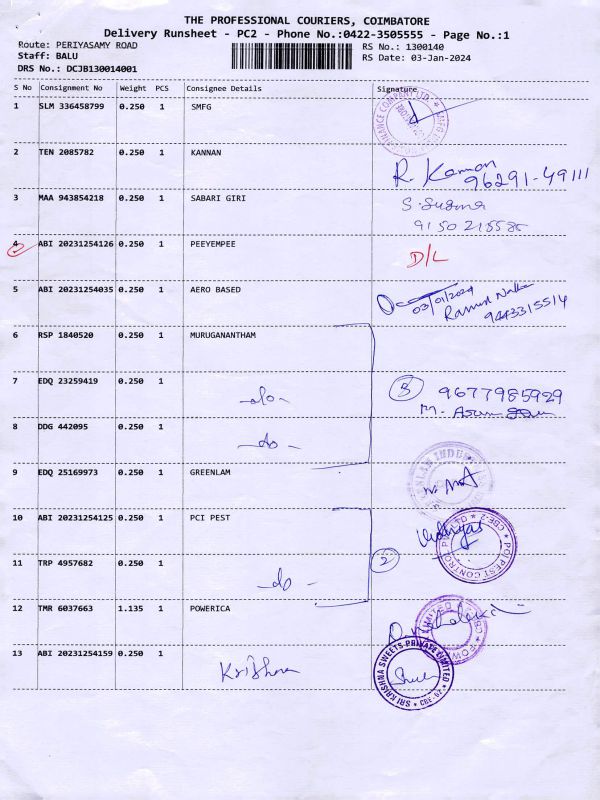 THE PROFESSIONAL COURIERS, COIMBATORE
Delivery Runsheet - PC2 - Phone No.:0422-3505555 - Page No.:1
Route: PERIYASAMY ROAD
RS No.: 1300140
Staff: BALU
RS Date: 03-Jan-2024
DRS No.: DCJB130014001
S No Consignment No Weight PCS Consignee Details Signature
1 SLM 336458799 0.250 1 SMFG
2 TEN 2085782 0.250 1 KANNAN
R. Kannan
96291-49111
3 MAA 943854218 0.250 1 SABARI GIRI
S. Suguna
9150215585
4 ABI 20231254126 0.250 1 PEEYEMPEE
D/L
5 ABI 20231254035 0.250 1 AERO BASED
03/01/2024
9443315514
6 RSP 1840520 0.250 1 MURUGANANTHAM
7 EDQ 23259419 0.250 1 -do-
3 9677985929
8 DDG 442095 0.250 1 -do-
9 EDQ 25169973 0.250 1 GREENLAM
10 ABI 20231254125 0.250 1 PCI PEST
PCI PEST CONTROL CBE-2
11 TRP 4957682 0.250 1 -do-
2
12 TMR 6037663 1.135 1 POWERICA
13 ABI 20231254159 0.250 1 Krishna
SRI KRISHNA SWEETS PRIVATE LIMITED CBE-02